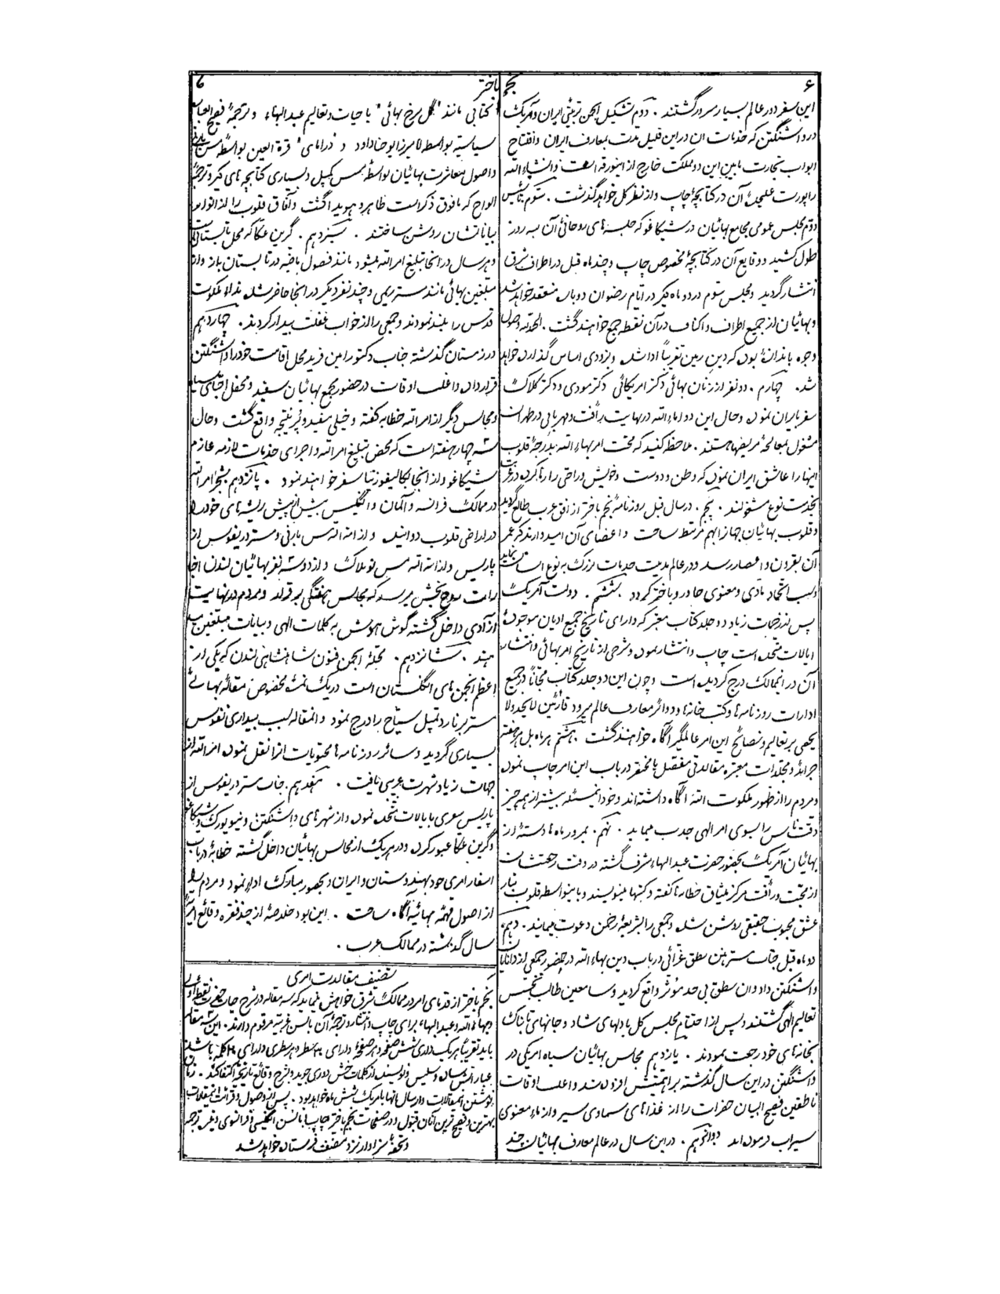 ۶ نجم
این سفر دور عالم بسیار مسرور گشتند . دوم تشکیل انجمن تربیتی ایران و آمریک
در واشنگتن که خدمات آن در این قلیل مدت بمعارف ایران و افتتاح
ابواب تجارت ما بین این دو مملکت خارج از
راپورت علیحدهٔ آن در کتابچه چاپ و از نظر کل خواهد گذشت . سوم تأسیس
دوم مجلس عمومی مجامع بهائیان در شیکاغو که جلسه های روحانی آن سه روز
طول کشید و وقایع آن در کتابچهٔ مخصوص چاپ و چند ماه قبل در اطراف شرق
انتشار گردید و مجلس سوم در دو ماه دیگر در ایام رضوان دوباره منعقد خواهد شد
و بهائیان از جمیع اطراف و اکناف در آن نقطه جمع خواهند گشت . الحمد لله
وجوه باندازهٔ پول که دین زمین تقریباً ادا شد و بزودی اساس گذارده خواهد
شد . چهارم . دو نفر از زنان بهائی دکتر امریکائی دکتر مودی و دکتر کلارک
سفر بایران نمودند و حال این دو اماء الله در نهایت رأفت و مهربانی در طهران
مشغول بمعالجهٔ مریضها هستند . ملاحظه کنید که محبت امر بهاء الله بدرجهٔ قلوب
اینها را عاشق ایران نموده که وطن و دوست و خویش و راحتی را رها کرده در شرق
بخدمت نوع مشغولند . پنجم . در سال قبل روزنامهٔ نجم باختر از افق غرب طالع گردید
و قلوب بهائیان جهان را بهم مرتبط ساخت و اعضای آن امیدوارند که عمر
آن بقرون و اعصار رسد و در عالم مدنیت خدمات بزرگ به نوع انسان نماید
و سبب اتحاد مادی و معنوی خاور و باختر گردد . ششم . دولت آمریک
پس از زحمات زیاد دو جلد کتاب معتبر که دارای تاریخ جمیع ادیان موجودهٔ
ایالات متحده است چاپ و انتشار نمود و شرحی از تاریخ امر بهائی و انتشار
آن در آن ممالک درج گردیده است و چون این دو جلد کتاب مجاناً در جمیع
ادارات روزنامه ها و کتب خانه ها و دوائر معارف عالم میرود قارئین لا یعد و لا
یحصی بر تعالیم و نصائح این امر عالمگیر آگاه خواهند گشت . هشتم هر ماه بل هر هفته
جرائد و مجلات معتبره مقالاتی مفصل یا مختصر در باب این امر چاپ نموده
و مردم را از ظهور ملکوت الله آگاه داشته اند و خود این مسئله بیشتر از هر چیز
دقت ناس را بسوی امر الهی جذب مینماید . نهم . به مرور ماه ها دستهٔ از
بهائیان آمریک بحضور حضرت عبدالبهاء مشرف گشته در وقت رجعتشان
از محبت و رأفت مرکز میثاق خطابه ها گفته و کتبها مینویسند و باینواسطه قلوب بنار
عشق محبوب حقیقی روشن شده و جمعی را بشریعهٔ رحمن دعوت مینمایند . دهم .
دو ماه قبل جناب مستر نطق غرائی در باب دین بهاء الله در حضور جمعی از دانایان
واشنگتن داد و آن نطق بی حد مؤثر واقع گردید و سامعین طالب تجسس
تعالیم الهی گشتند و پس از اختتام مجلس کل با دلهای شاد و جانهای تابناک
بخانه های خود رجعت نمودند . یازدهم مجلس بهائیان سیاه امریکی در
واشنگتن در این سال گذشته بر اهمیتش افزوده شد و اغلب اوقات
ناطقین فصیح البیان حضرات را از غذاهای سماوی سیر و از ماء معنوی
سیراب فرموده اند . دوازدهم . در این سال در عالم معارف بهائیان چند
باختر ۷
کتابی مانند "گل سرخ بهائی" یا حیات و تعالیم عبدالبهاء و ترجمهٔ
سیاسیه بواسطهٔ میرزا یوحنا داود و "درامای" قرة العین بواسطهٔ مس
و اصول معاشرت بهائیان بواسطهٔ مس کمپل و بسیاری کتابچه های دیگر و ترجمهٔ
الواح که ما فوق ذکر است ظاهر و هویدا گشت و آفاق قلوب را از انوار
بیاناتشان روشن ساختند . سیزدهم . گرین عکا که محل تابستانی است
و هر سال در آنجا تبلیغ امر الله میشود مانند فصول ماضیه در تابستان باز و از
مبلغین بهائی مانند مستر ریمی و چند نفر دیگر در آنجا حاضر شده نداء ملکوت
قدس را بلند نمودند و جمعی را از خواب غفلت بیدار کردند . چهاردهم
در زمستان گذشته جناب دکتور امین فرید محل اقامت خود را واشنگتن
قرار داد و اغلب اوقات در حضور جمع بهائیان سفید و محفل احبای سیاه
و مجالس دیگر از امر الله خطابه گفته و خیلی مفید و پر نتیجه واقع گشت و حال
سه چهار هفته است که محض تبلیغ امر الله و اجرای خدمات لازمه عازم
شیکاغو و از آنجا بکالیفورنیا سفر خواهند نمود . پانزدهم شجر امر الله
در ممالک فرانسه و آلمان و انگلیس بیش از پیش ریشه های خود را
در اراضی قلوب دوانید و از امة الله مس بارنی و مستر دریفوس از
پاریس و از امة الله مس نوبلاک و از دو سه نفر بهائیان لندن اخبا
رات روح بخش میرسد که مجالس هفتگی برقرار و مردم در نهایت
آزادی داخل گشته گوش هوش به کلمات الهی و بیانات مبلغین
میدهند . شانزدهم . مجلهٔ انجمن فنون شاهنشاهی لندن که یکی از
اعظم انجمن های انگلستان است در یک نمرهٔ مخصوص مقالهٔ بهائی
مستر برنارد تمپل سیاح را درج نمود و آن مقاله سبب بیداری نفوس
بسیاری گردید و سائر روزنامه ها محتویات آنرا نقل نموده امر الله از آن
جهات زیاد شهرت غریبی یافت . هفدهم . جناب مستر دریفوس از
پاریس سفری بایالات متحده نمود و از شهرهای واشنگتن و نیویورک و شیکاغو
و گرین عکا عبور کرده و در هر یک از مجالس بهائیان داخل گشته خطابهٔ در باب
اسفار امری خود بهندوستان و ایران و بحضور مبارک اداء نمود و مردم را
از اصول مهمهٔ بهائیه آگاه ساخت . این بود خلاصهٔ از چند فقره وقایع امریهٔ
سال گذشته در ممالک غرب .
تصنیف مقالات امری
نجم باختر از قدمای امر در ممالک شرق خواهش مینماید که سه مقاله در شرح حیات حضرت نقطهٔ اولی
و بهاء الله و عبدالبهاء برای چاپ و انتشار و ترجمهٔ آن بالسن غربیه مرقوم دارند . این سه مقاله
باید تقریباً هر یک دارای شش صفحه و هر صفحهٔ دارای ۳۰ سطر و هر سطری دارای ۲۰ کلمه باشد
عبارتش ساده و سلیس و از کلمات خشن دوری جوید و به شرح وقایع تاریخ اکتفا کند . زمان
نوشتن این مقالات و ارسال بانها بامریک شش ماه خواهد بود . پس از وصول و قرائت مقالات
بهترین و فصیح ترین آنان قبول و در صفحات نجم باختر چاپ یا بالسن انگلیسی و فرانسوی و غیره ترجمه
و تحفهٔ سزاوار نزد مصنف فرستاده خواهد شد